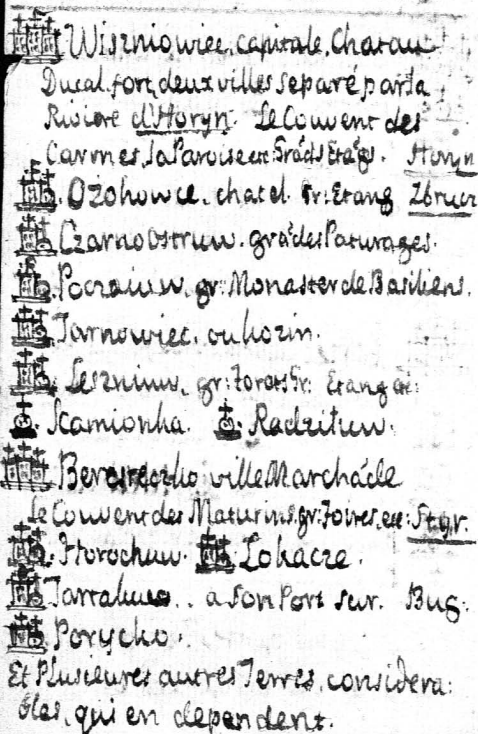 Wiszniowiec, capitale, Chatau
Ducal, fort, deux villes separé par la
Riviere d'Horyn. Le Couvent des
Carmes, la Paroise et Grāds Etāgs. Horyn
Ożohowce, chatel. Gr: Etang Zbrucz
Czarno Ostruw. grādes Paturages.
Poczaiuw, gr: Monaster de Basiliens.
Tarnowiec, ou hozin.
Leszniuw, gr: forets Gr: Etang et:
Kamionka. Radzituw.
Beresteczko ville Marchāde
le Couvent des Maturins, gr: foires, etc: Styr.
Horochuw. Lokacze.
a son Port sur. Bug.
Porycko.
Et Plusieures autres Terres, considera:
bles, qui en dependent.